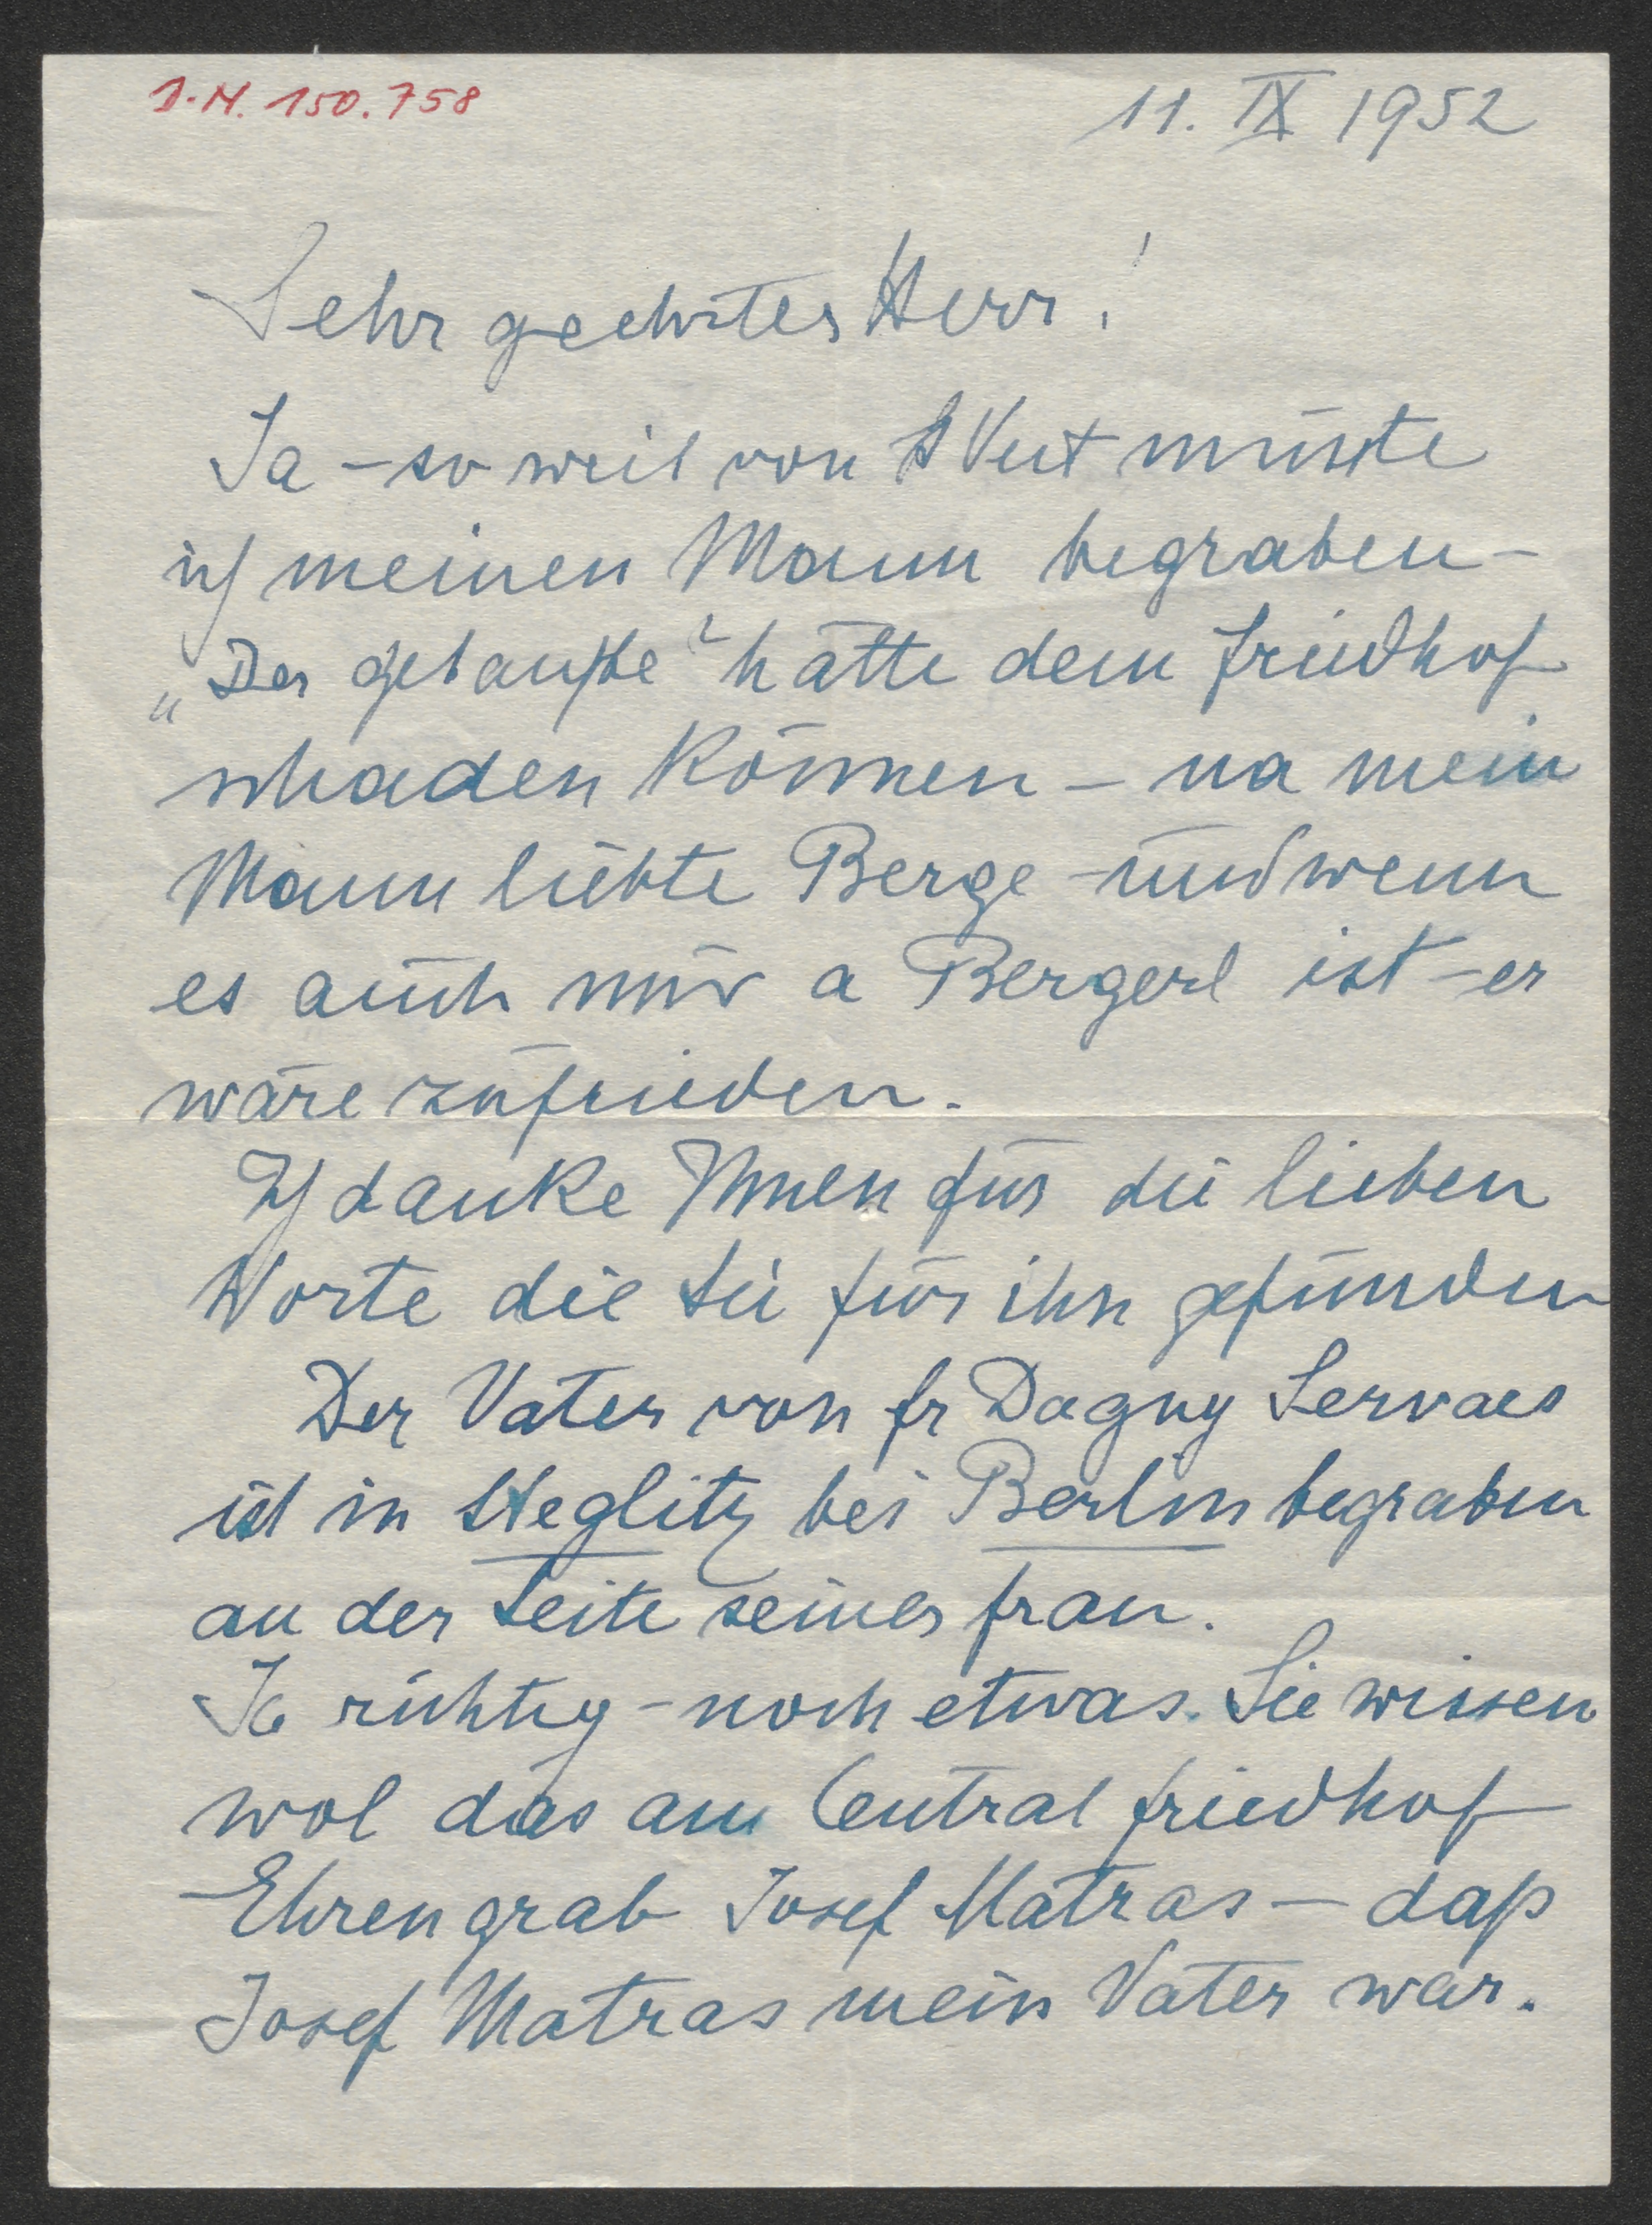 I.N. 150.758
11. IX 1952
Sehr geehrter Herr!
Ja – so weit von Wut müste
ich meinen Mann begraben –
„Der getaufte“ hätte dem Friedhof
schaden können – na mein
Mann liebte Berge – und wenn
es auch nur a Bergerl ist – er
wäre zufrieden.
Ich danke Ihnen für die lieben
Worte die Sie für ihn gefunden
Der Vater von Fr Dagny Servaes
ist in Steglitz bei Berlin begraben
an der Seite seiner Frau.
Ja richtig – noch etwas. Sie wissen
wol das am Central friedhof
Ehrengrab Josef Matras – daß
Josef Matras mein Vater war.